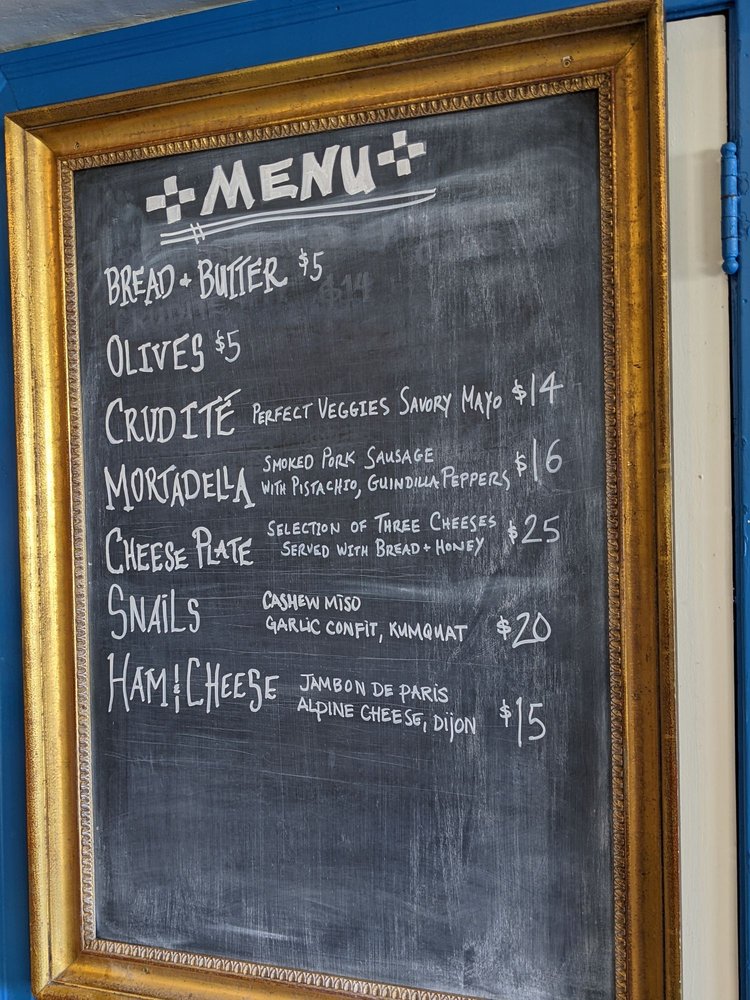 MENU
BREAD + BUTTER $5
OLIVES $5
CRUDITÉ PERFECT VEGGIES SAVORY MAYO $14
MORTADELLA SMOKED PORK SAUSAGE
WITH PISTACHIO, GUINDILLA PEPPERS $16
CHEESE PLATE SELECTION OF THREE CHEESES
SERVED WITH BREAD + HONEY $25
SNAILS CASHEW MISO
GARLIC CONFIT, KUMQUAT $20
HAM & CHEESE JAMBON DE PARIS
ALPINE CHEESE, DIJON $15